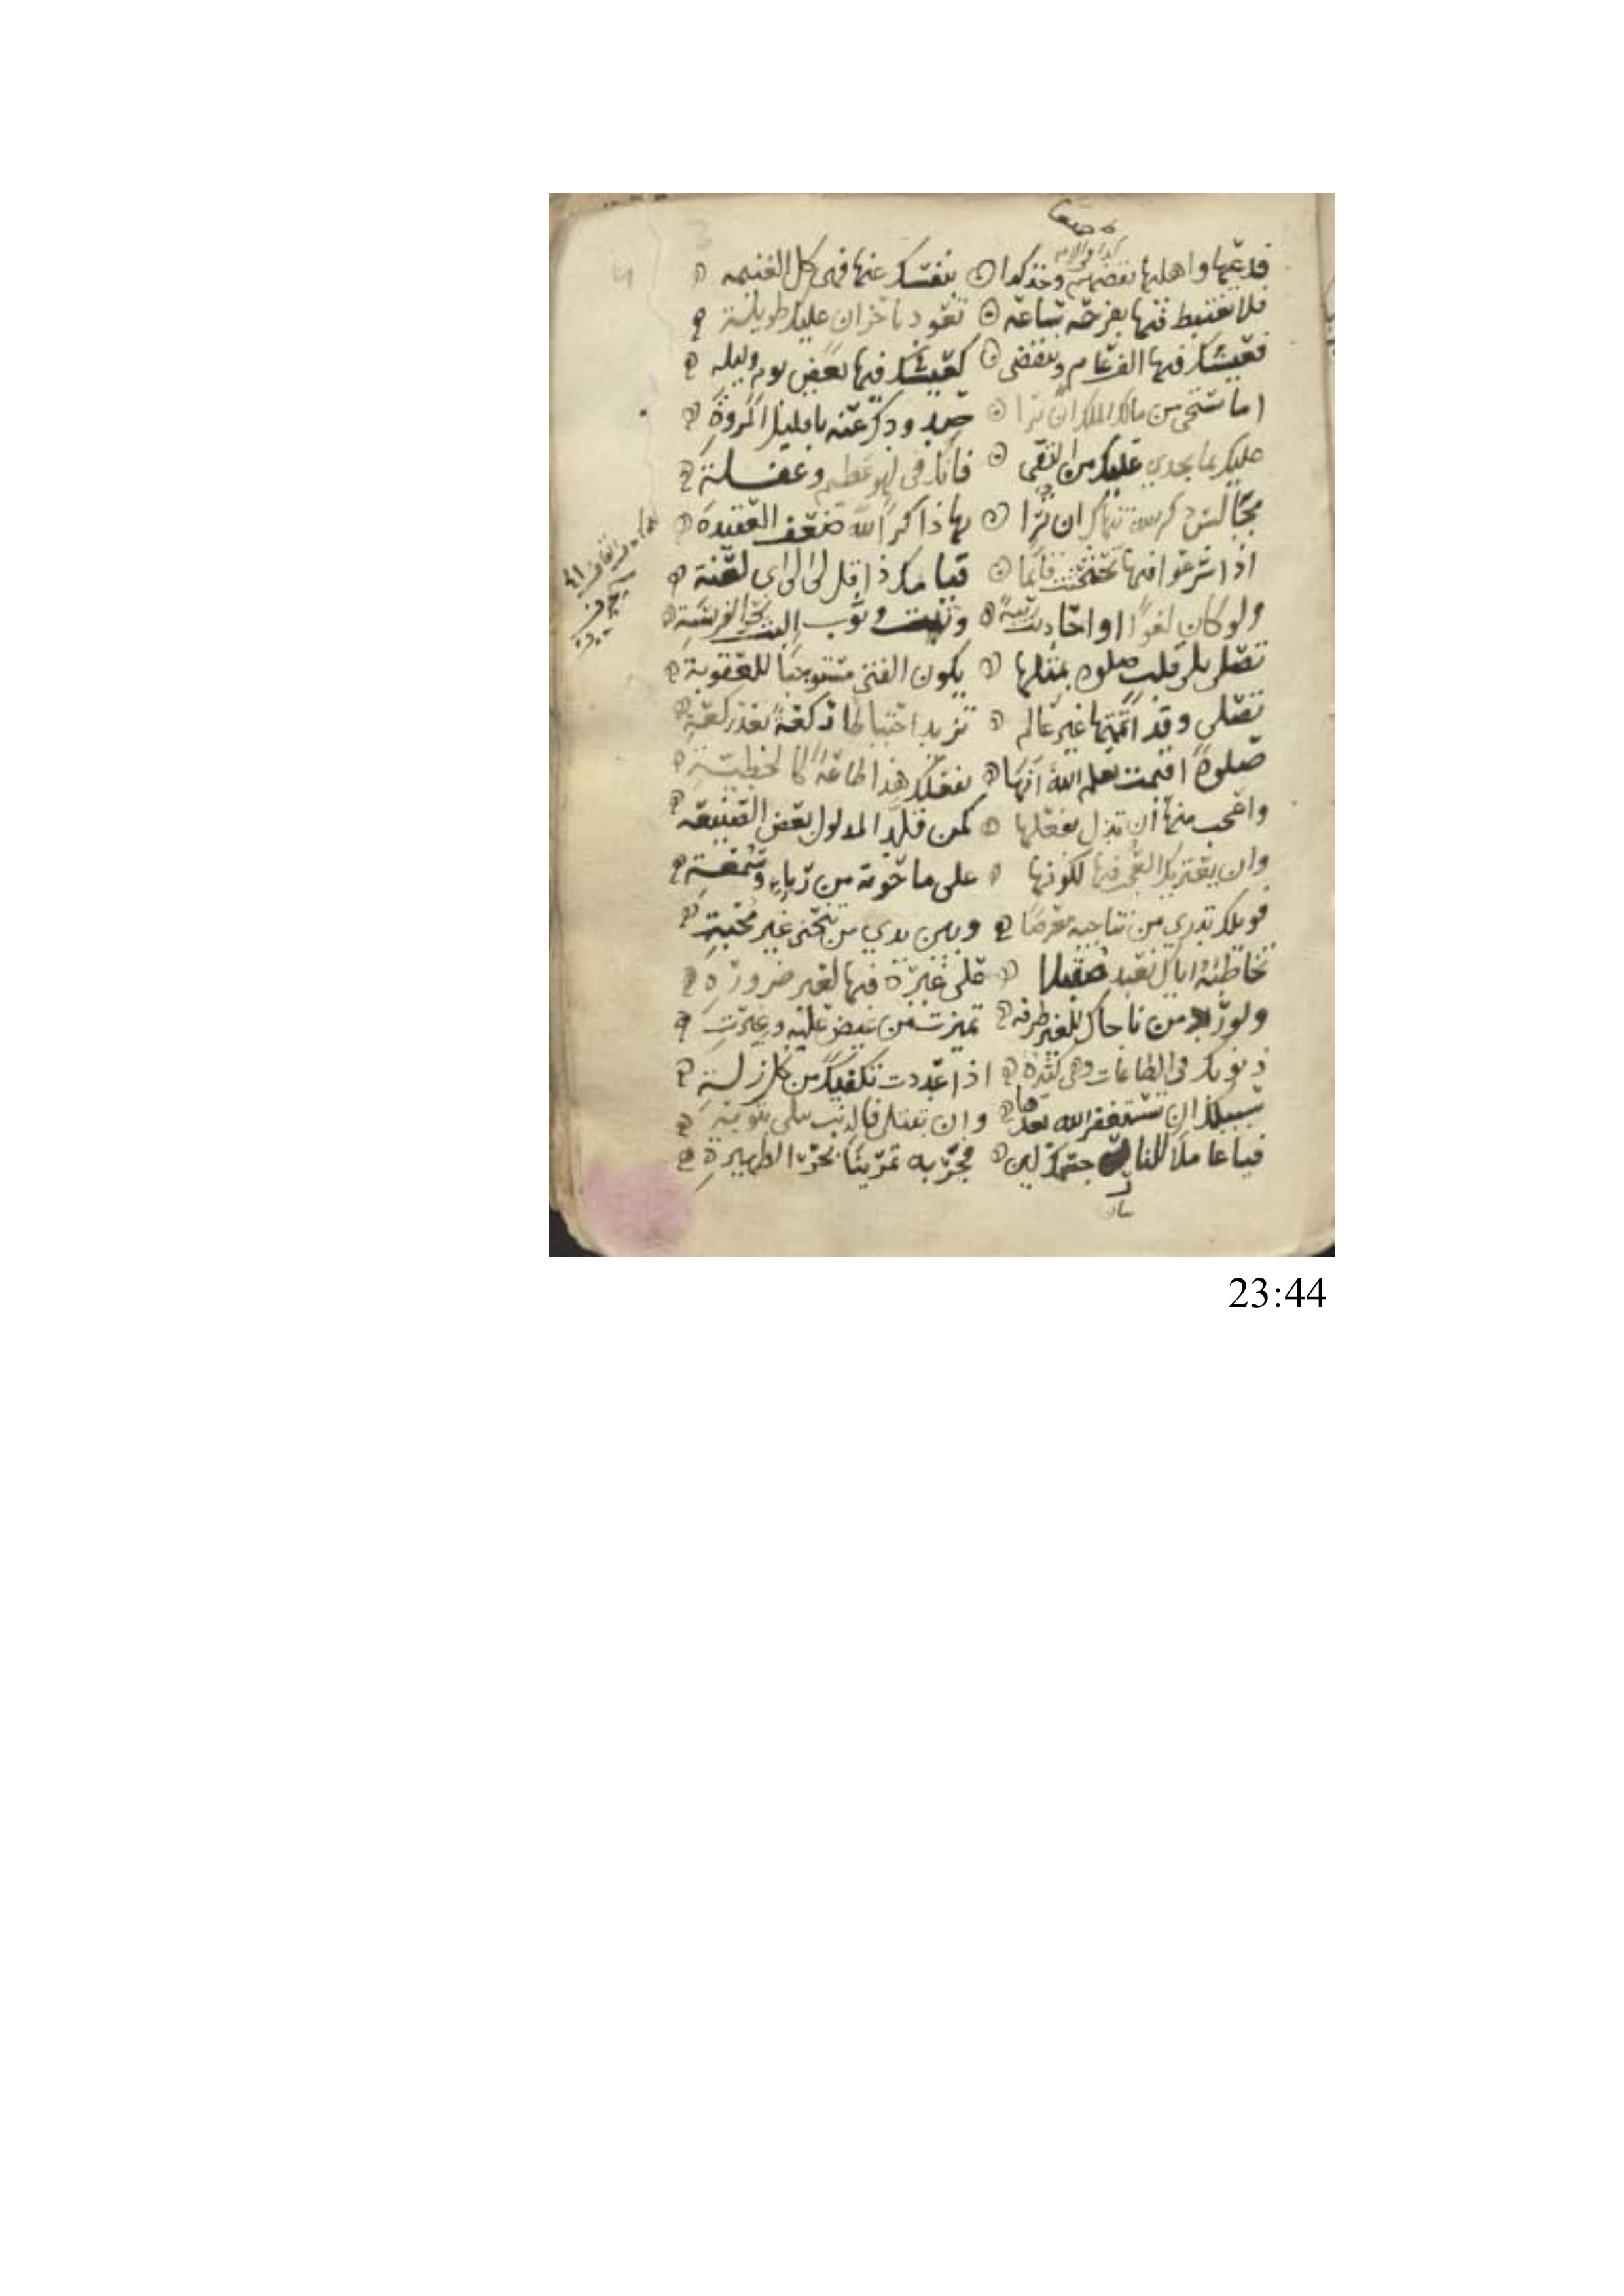 فدعها واهلها وخذ كذا نفسك عنها فهي كل الغنيمه
فلا تغتبط فيها بفرحه ساعه تعود باحزان عليك طويلة
فعيشك فيها الف عام وينقضي كعيشك فيها بعض يوم وليله
اما تستحي من مالك الملك ان ترا صدود وذكر عنه يا قليل المروة
عليك بما يجدي عليك من التقى فانك في لهو عظيم وغفلة
مجالس ذكر الله ان ترا بها ذاكرا لله ضعف العقيدة
اذا شرعوا فيها قائما قيامك ذا قل لي الى اي لعنة
ولو كان لغوا او احاديث ريبة وثبت وثوب الليث نحو الفريسة
تصلي بلا قلب صلوة بمثلها يكون الفتى مستوجبا للعقوبة
تصلي وقد اتممتها غير عالم تزيد احتياطا ركعة بعد ركعة
صلوة اقيمت يعلم الله انها بفعلك هذا طاعة كالخطيئة
واعجب منها ان تدل بفعلها كمن قلد المدلول بعض الصنيعه
وان يعتريك العجب فيها لكونها على ما حوته من رياء وسمعة
فويلك تدري من تناجيه معرضا وبين يدي من تنحني غير مخبت
تخاطبه اياك نعبد مقبلا على غيره فيها لغير ضرورة
ولو رد من ناجاك للغير طرفه تميزت من غيض عليه وغيرت
ذنوبك في الطاعات وهي كثيرة اذا عددت تكفيك من كل زلة
سبيلك ان تستغفر الله بعدها وان
فيا عاملا للنار جسمك لين فجربه تمرينا بحر الظهيرة
23:44